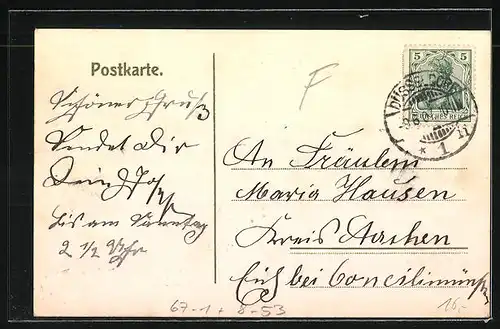 Postkarte.
Schöner Gruß
Sendet Dir
Dein
bis am Sonntag
2 1/2 Uhr
F
5 5
DEUTSCHES REICH
DÜSSELDORF
* 1 n
An Fräulein
Maria Hausen
Kreis Aachen
Eich bei Cornelimünster
67-1 + 8-53
15,-